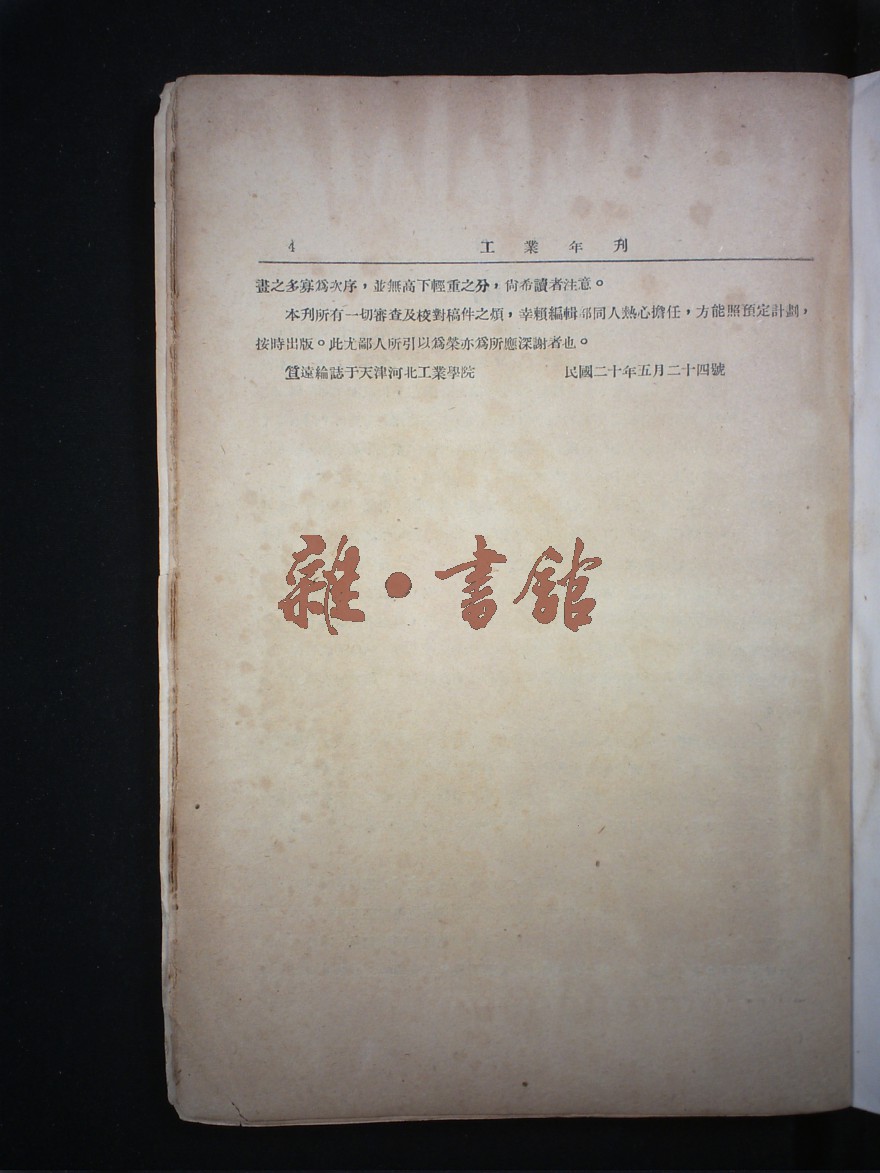 4 工業年刋
畫之多寡爲次序，並無高下輕重之分，尙希讀者注意。
本刋所有一切審查及校對稿件之煩，幸賴編輯部同人熱心擔任，方能照預定計劃，
按時出版。此尤鄙人所引以爲榮亦爲所應深謝者也。
遠綸誌于天津河北工業學院 民國二十年五月二十四號
雜·書館